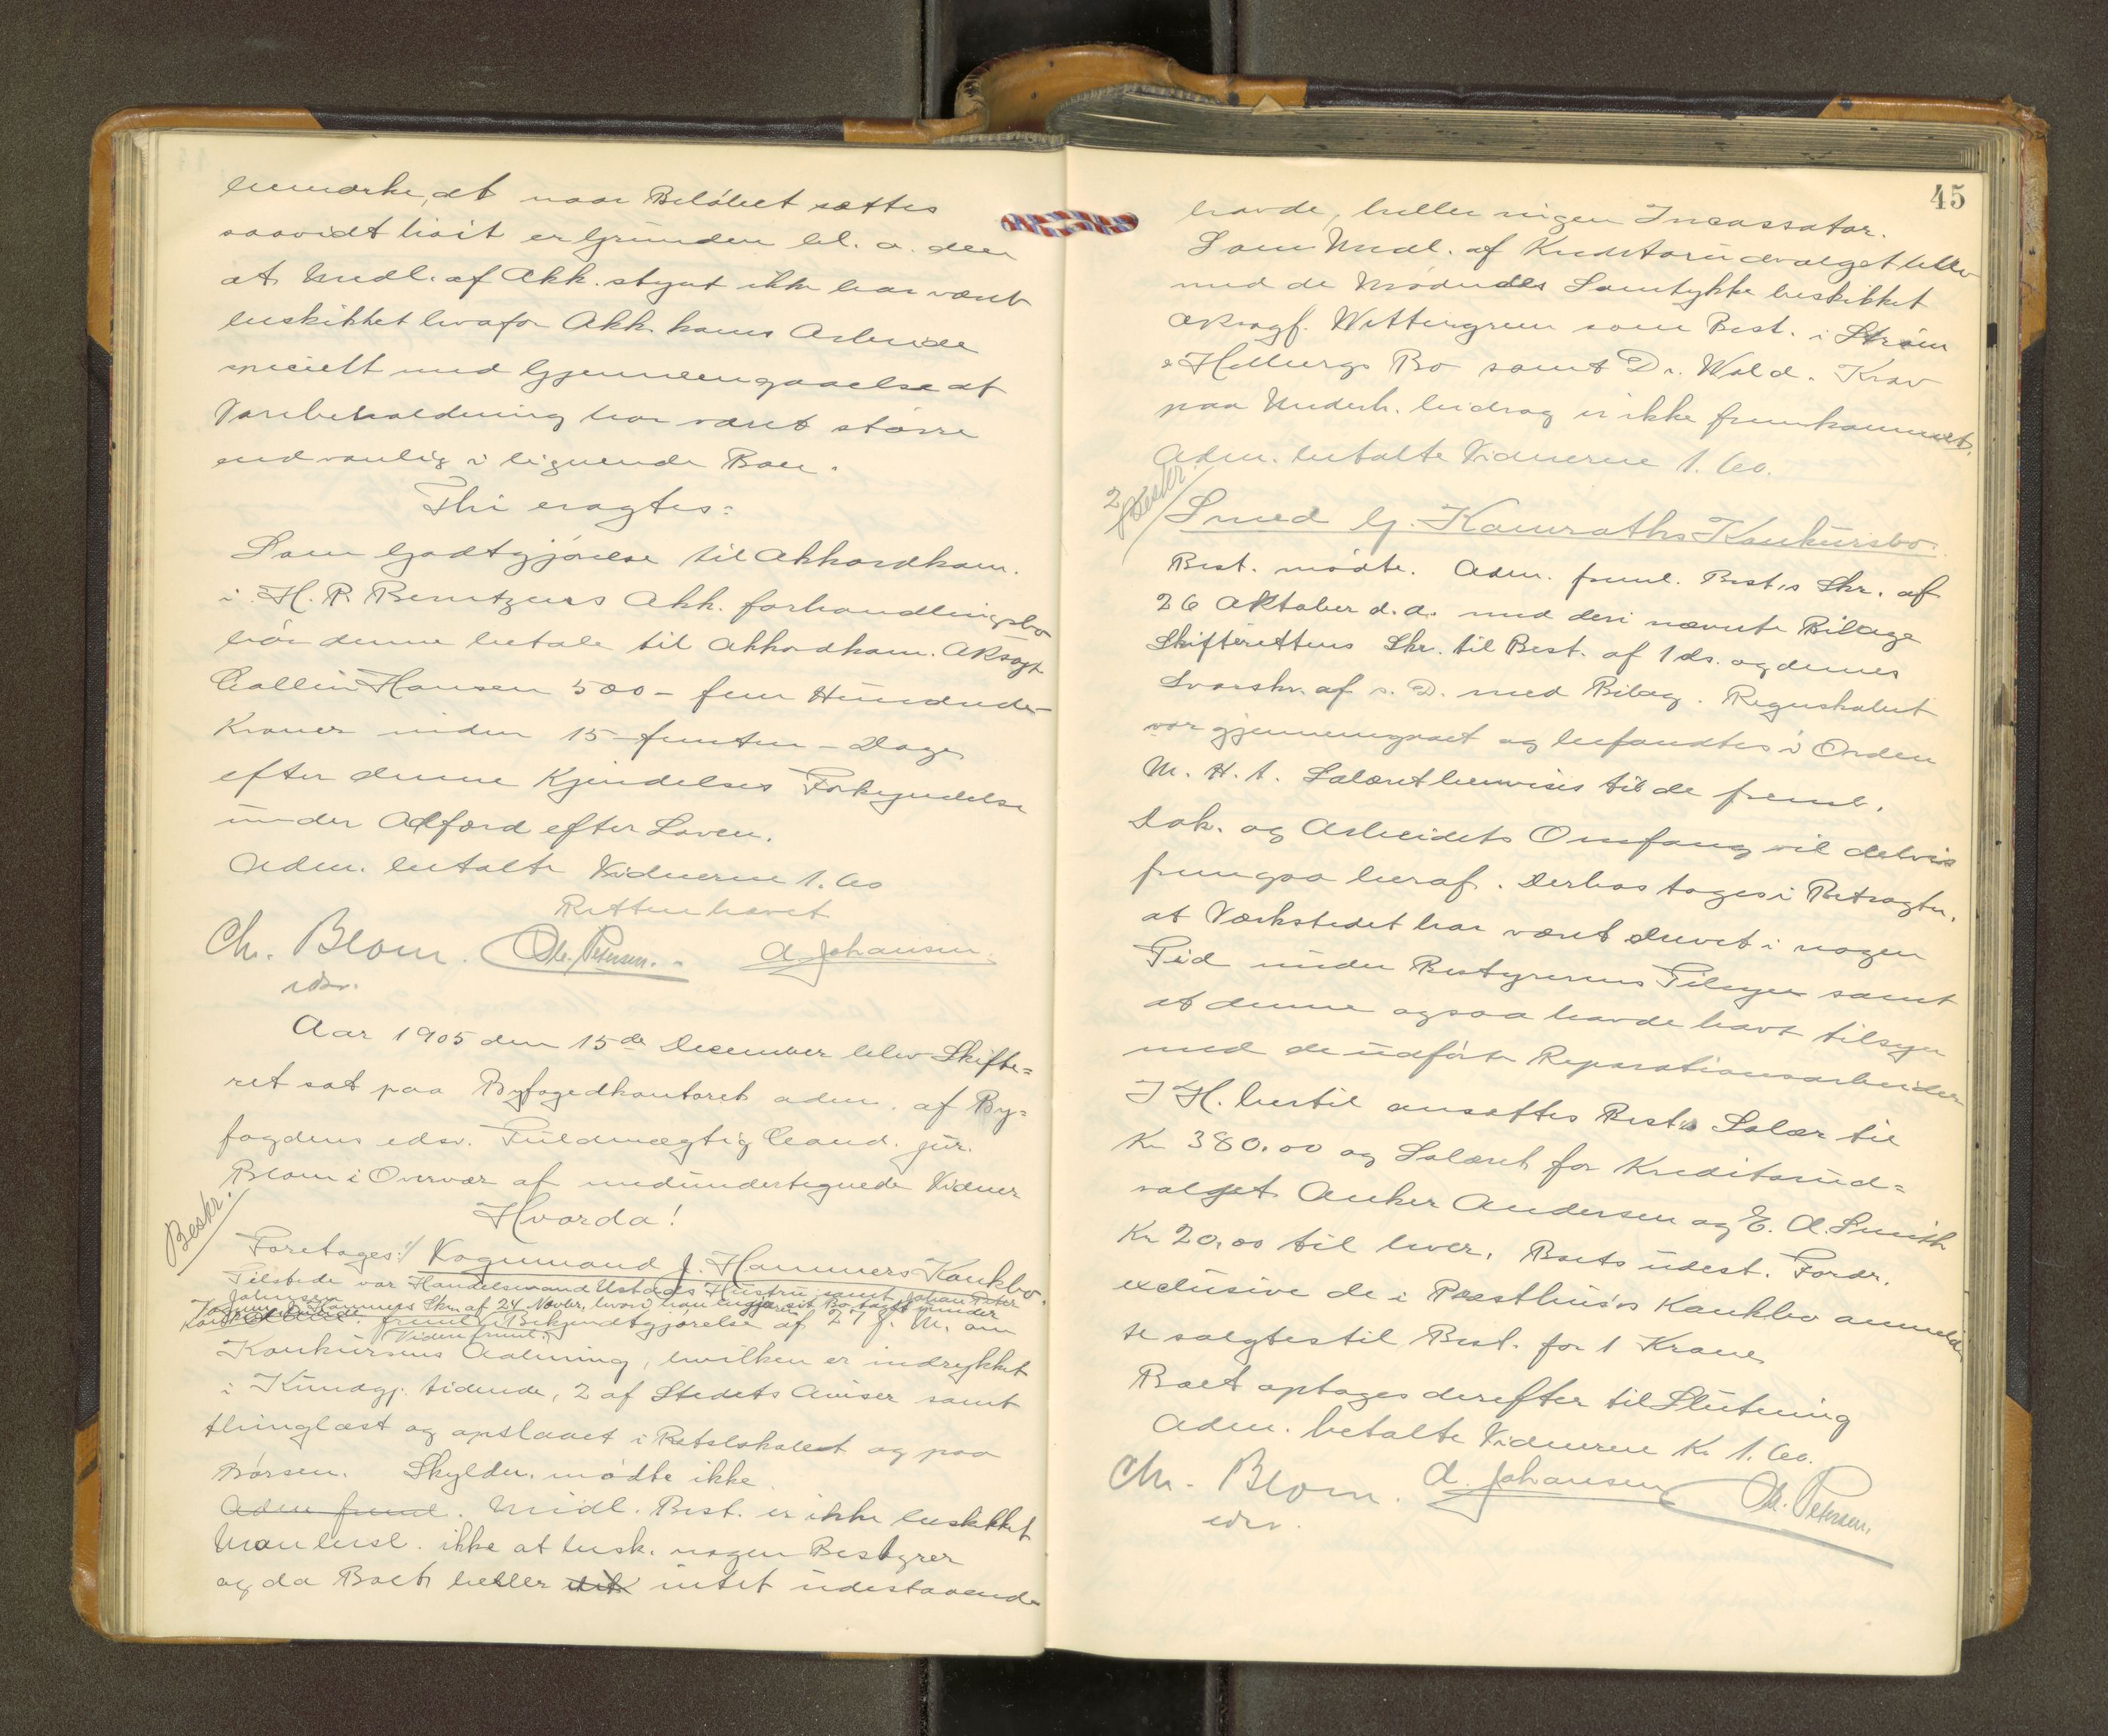 bemærke, at naar Beløbet sættes
saavidt høit er Grunden bl. a. den
at Medl. af Akk. styret ikke har været
beskikket hvafor Akk. kams Arbeide
specielt med Gjennemgaaelse af
Varebeholdning har været større
end vanlig i lignende Boer.
Thi eragtes:
Som Godtgjørelse til Akkordkom.
i H. P. Berntzens Akk. forhandlingsbo
bør denne betale til Akkordkom. Aksagf
Collin Hansen 500 - fem Hundrede
Kroner inden 15 - femten - Dage
efter denne Kjendelses Forkyndelse
under Adfærd efter Loven.
Adm. betalte Vidnerne 1.60
Retten hævet
Ch. Blom. Chr. Petersen. A. Johansen.
edsv.
Aar 1905 den 15de December blev Skifte=
ret sat paa Byfogedkontoret adm. af By=
fogdens edsv. Fuldmægtig Cand. jur.
Blom i Overvær af medundertegnede Vidner
Hvorda!
Beskr.
Foretages: 1/ Vognmand J. Hammers Konkbo.
Tilstede var Handelsmand Ustads Hustru samt Johan Peter
Johnsen
Vognm. J. Hammers Skr. af 24 Novbr. hvori han begjærer sit Bo taget under
Konkursbehandl. freml. Bekjendtgjørelse af 27 f. M. om
Viden freml.
Konkursens Aabning, hvilken er indrykket
i Kundgj. tidende, 2 af Stedets Aviser samt
thinglæst og opslaaet i Retslokalet og paa
Børsen. Skyldn. mødte ikke
Adm freml. Midl. Best. er ikke beskikket
Man besl. ikke at besk. nogen Bestyrer
og da Boet heller intet udestaaende
45
havde, heller ingen Incassator.
Som Medl. af Kreditorudvalget blev
med de Mødendes Samtykke beskikket
Aksagf. Wettergreen som Best. i Strøm
& Hellbergs Bo samt Dr. Wold. Krav
paa Underh. bidrag er ikke fremkommet.
Adm. betalte Vidnerne 1.60.
2 Beskr.
Smed G. Kamraths Konkursbo.
Best. mødte. Adm. freml. Best.s Skr. af
26 Oktober d. a. med deri nævnte Bilage
Skifterettens Skr. til Best. af 1 ds. og dennes
Svarskr. af s. D. med Bilag. Regnskabet
var gjennemgaaet og befandtes i Orden
M. H. t. Salæret henvises til de freml.
Dok. og Arbeidets Omfang vil delvis
fremgaa heraf. Derhos tages i Betragtn.
at Værkstedet har været drevet i nogen
Tid under Bestyrerens Tilsyn samt
at denne ogsaa havde havt tilsyn
med de udførte Reparationsarbeider
I H. hertil ansættes Best.s Salær til
Kr 380.00 og Salæret for Kreditorud=
valget Anker Andersen og E. A. Smith
Kr 20.00 til hver. Boets udest. Fordr.
exclusive de i Præsthus's Konkbo anmeld
te salgtes til Best. for 1 Krone
Boet optages derefter til Slutning
Adm. betalte Vidnerne Kr 1.60.
Ch. Blom. A. Johansen Chr. Petersen.
edsv.